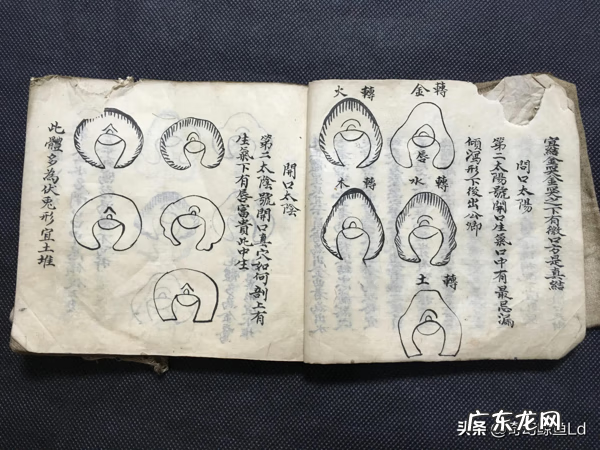 之下有微口方是真結
開口太陽
第二太陽號開口生氣口中有最忌漏
傾瀉形下後出公卿
金轉
火轉
水轉
木轉
土轉
開口太陰
第二太陰號開口真穴如何剖上有
生氣下有唇富貴此中生
此體多為伏兔形宜土堆
广东龙网
头条